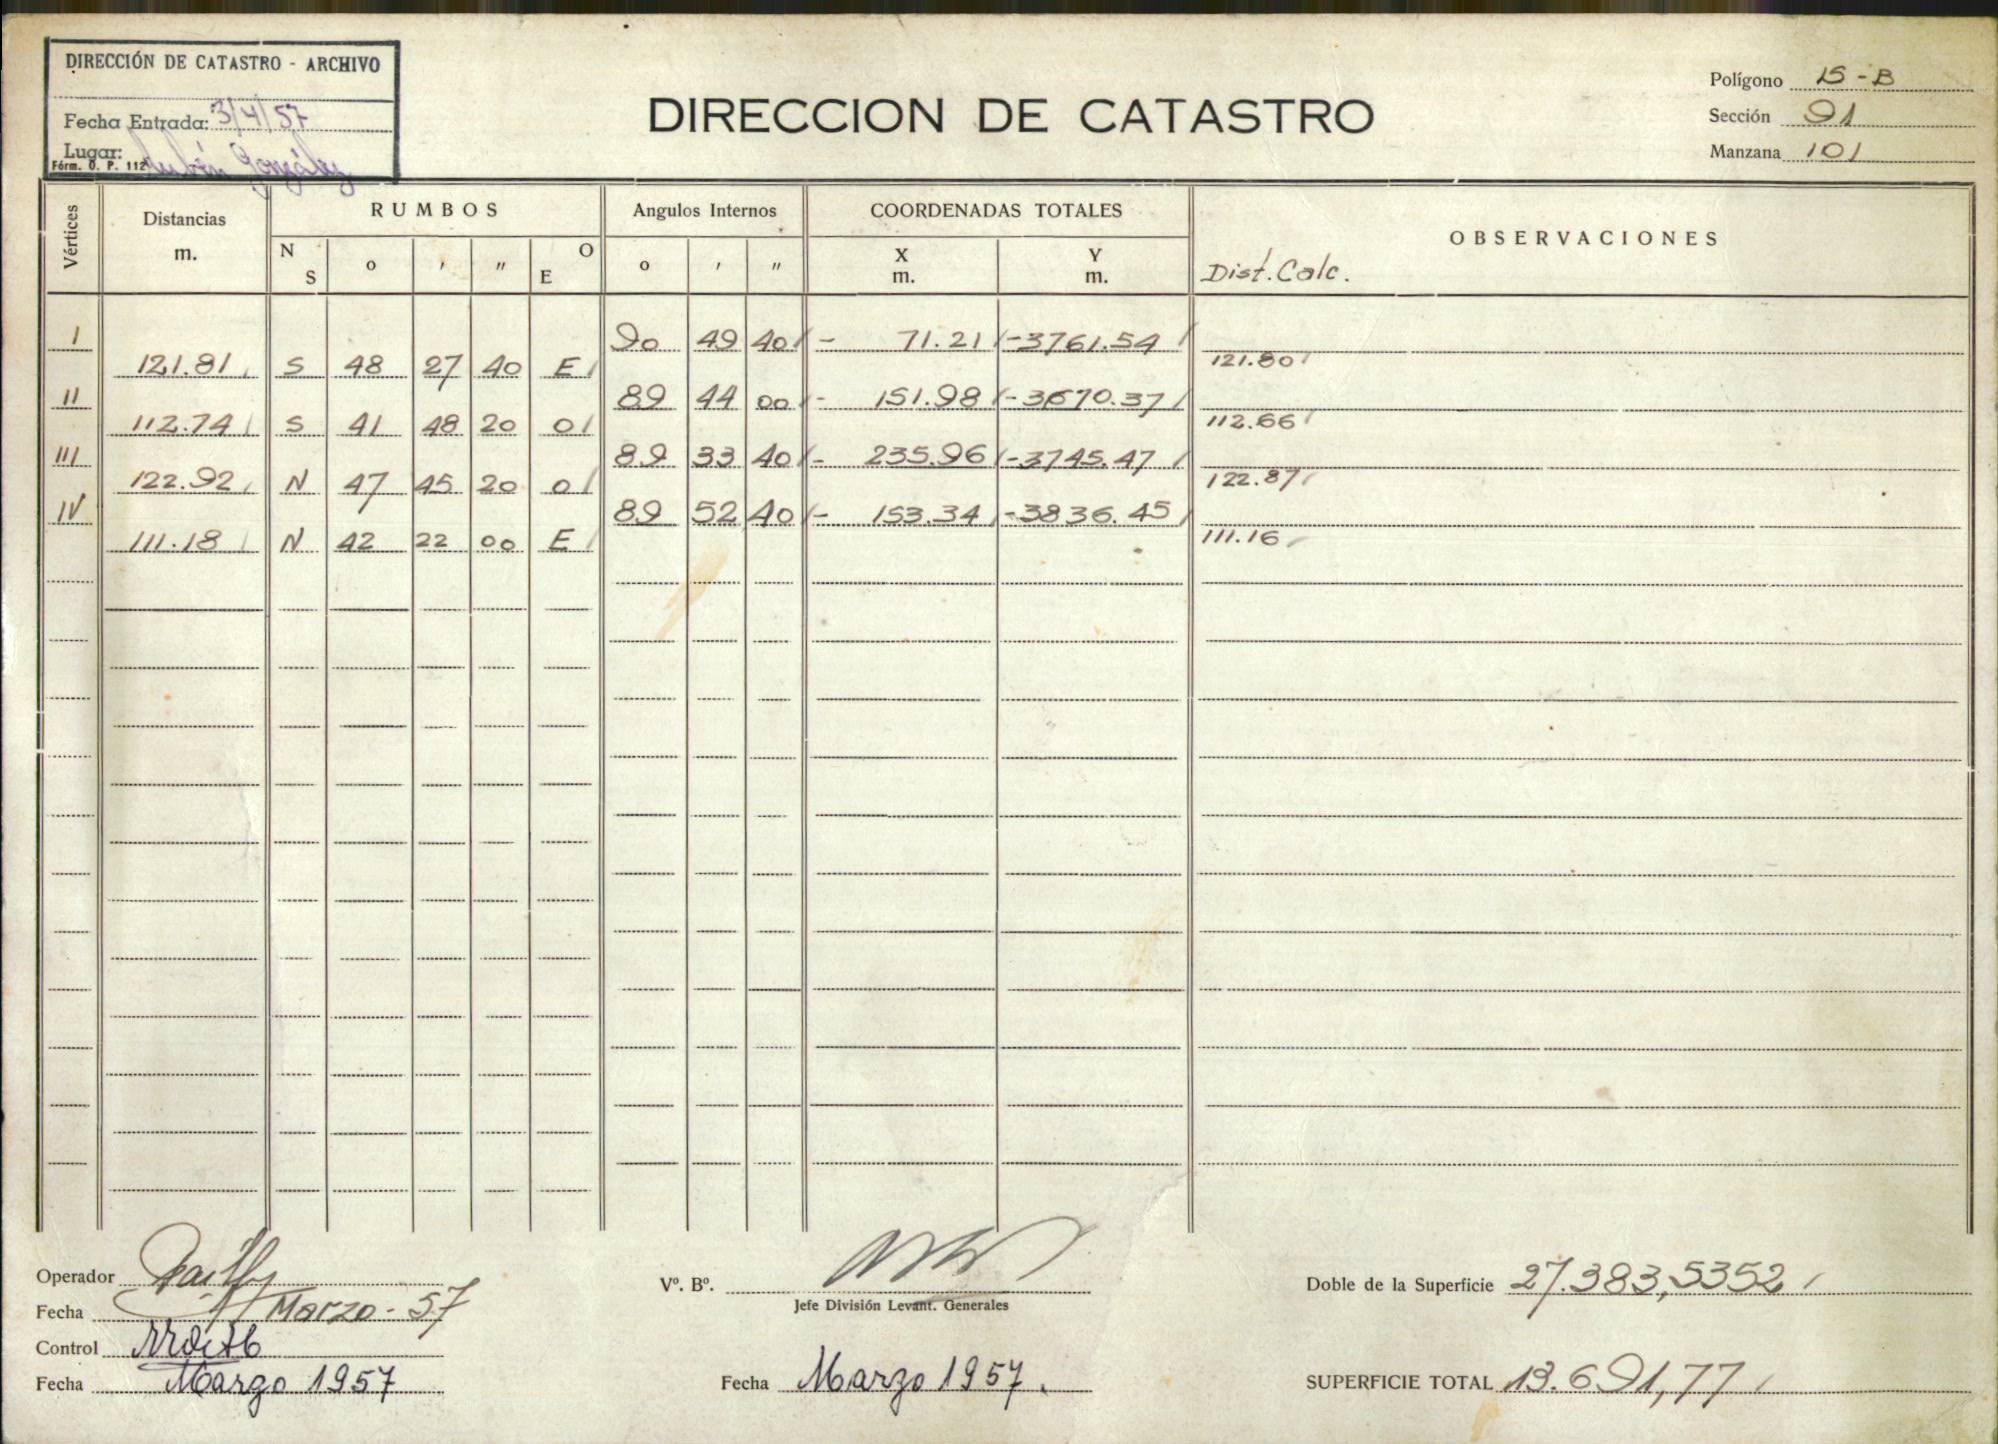 DIRECCIÓN DE CATASTRO - ARCHIVO
Fecha Entrada: 3/4/57
Lugar: Rubén González
Fórm. O. P. 112
DIRECCION DE CATASTRO
Polígono 15-B
Sección 91
Manzana 101
Vértices Distancias m. RUMBOS Angulos Internos COORDENADAS TOTALES OBSERVACIONES
N S o ' " O E o ' " X m. Y m. Dist. Calc.
I 90 49 40 - 71.21 -3761.54
121.81 S 48 27 40 E 121.80
II 89 44 00 - 151.98 -3670.37
112.74 S 41 48 20 O 112.66
III 89 33 40 - 235.96 -3745.47
122.92 N 47 45 20 O 122.87
IV 89 52 40 - 153.34 -3836.45
111.18 N 42 22 00 E 111.16
Operador
Fecha Marzo - 57
Control
Fecha Marzo 1957
Vº. Bº.
Jefe División Levant. Generales
Fecha Marzo 1957.
Doble de la Superficie 27.383,5352
SUPERFICIE TOTAL 13.691,77